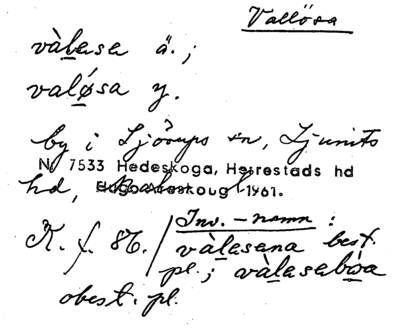 Vallösa
vàlasa ä. ;
valǿsa y.
by i Ljörups sn, Ljunits
N. 7533 Hedeskoga, Herrestads hd
hd,
1961.
K. f. 86. / Inv. - namn :
vàlasana best.
pl. ; vàlasabòa
obest. pl.